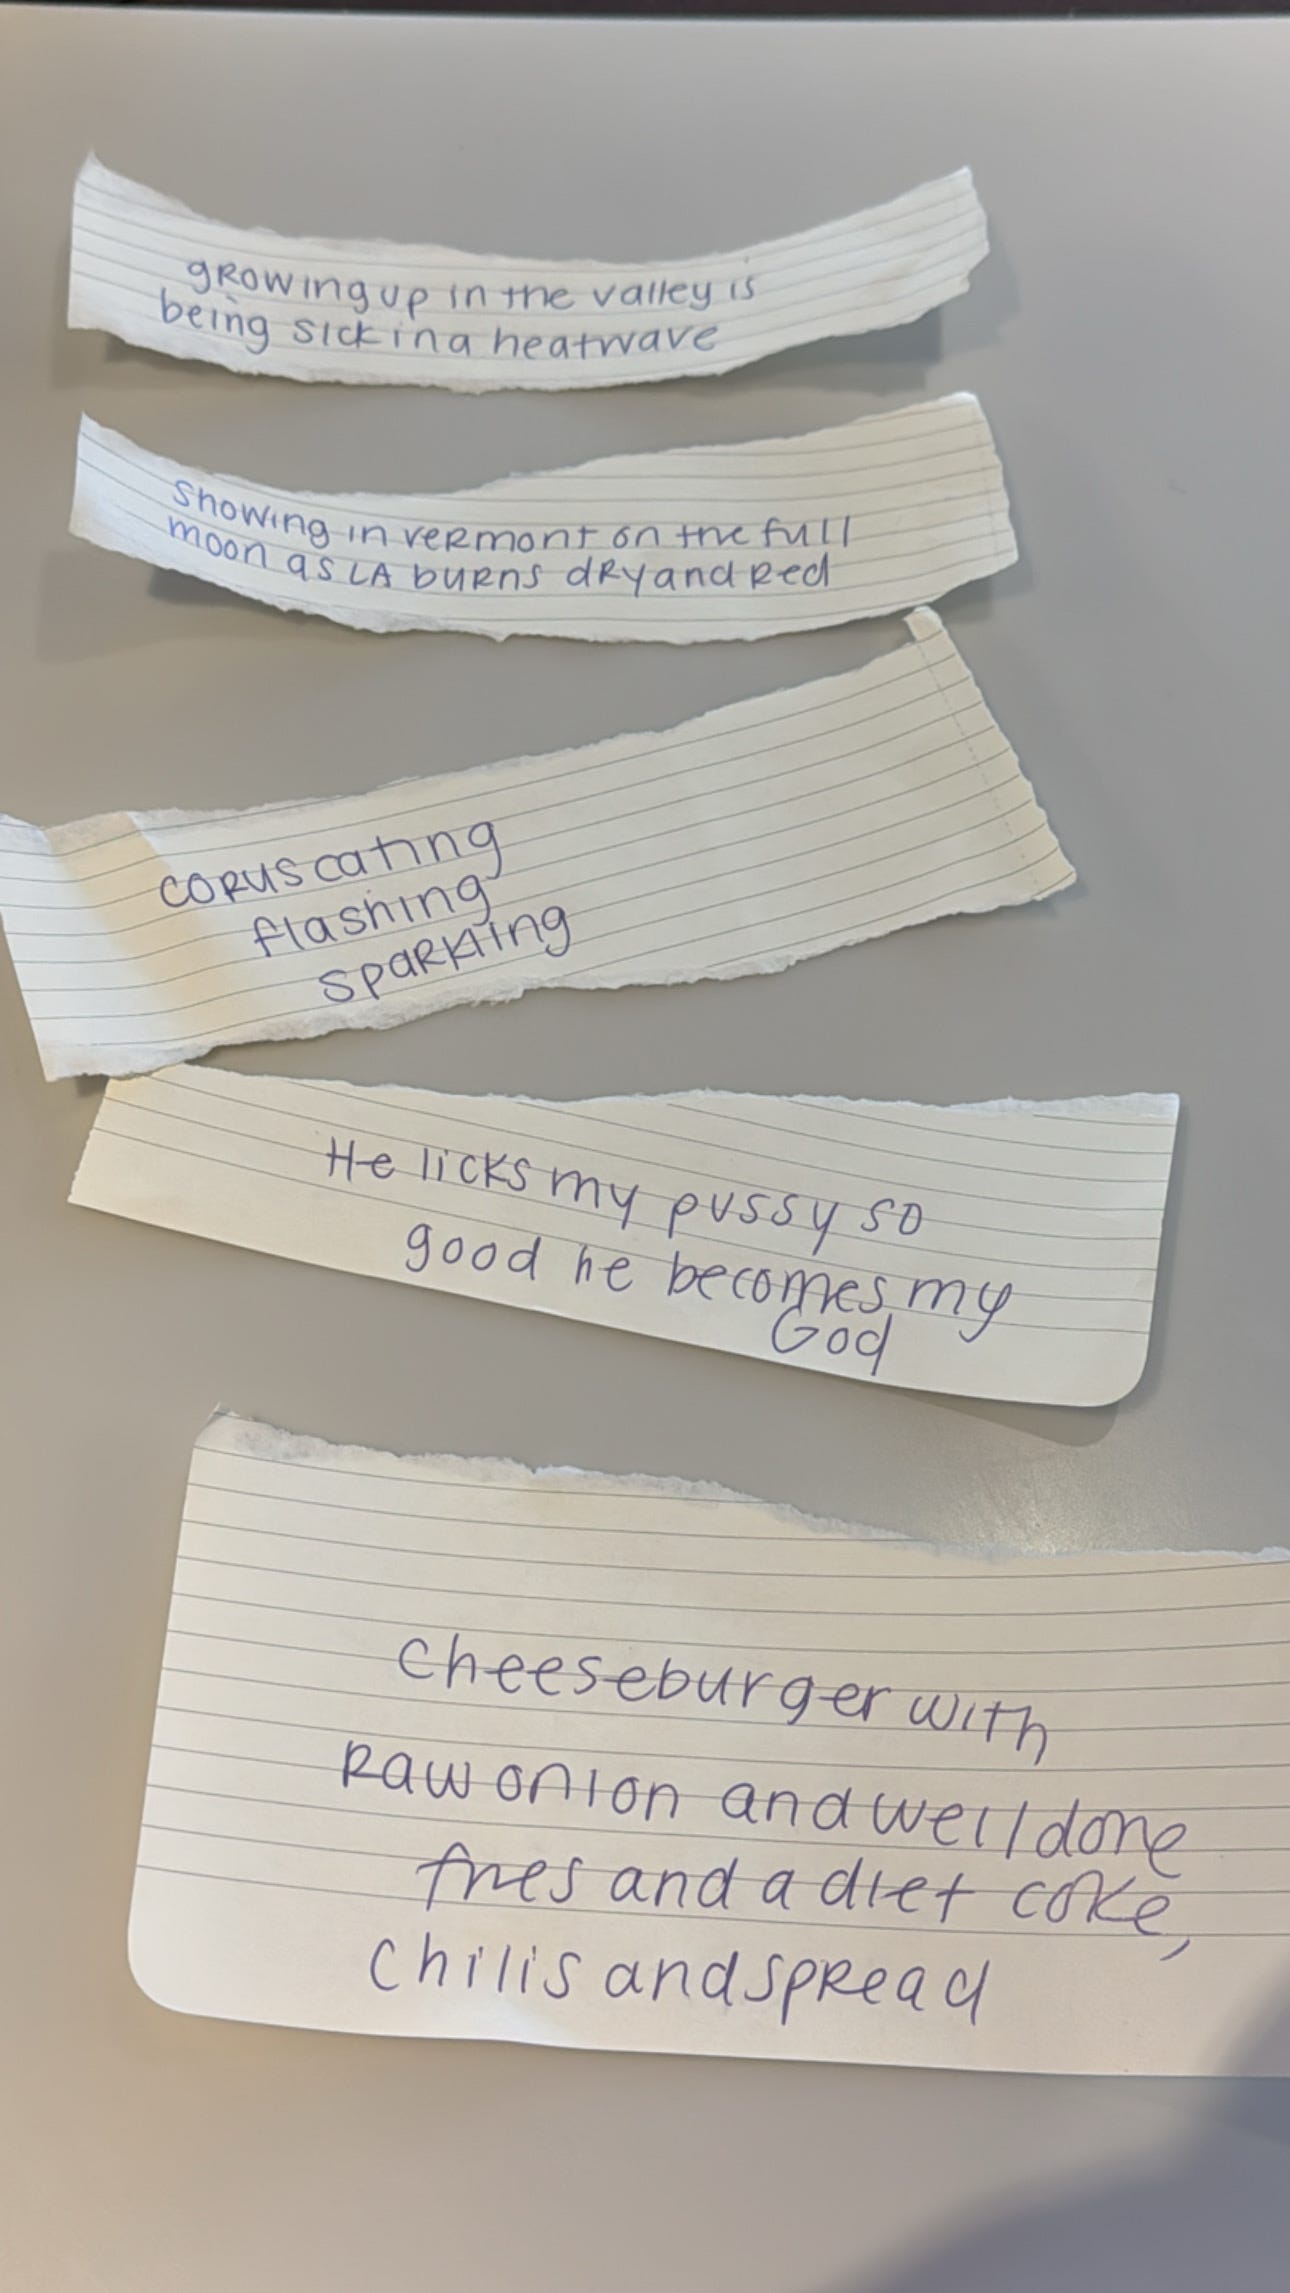 growing up in the valley is
being sick in a heatwave
snowing in vermont on the full
moon as LA burns dry and Red
coruscating
flashing
sparkling
He licks my pussy so
good he becomes my
God
cheeseburger with
Raw onion and well done
fries and a diet coke,
chilis and spread